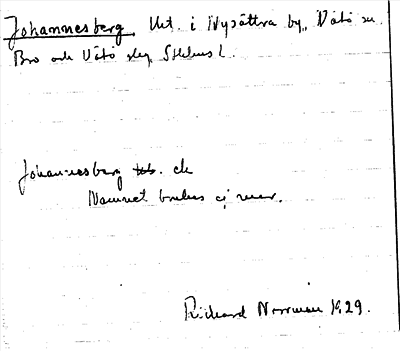 Johannesberg. Utt. i Nysättra by, Vätö sn.
Bro och Vätö skg, Sthlms l.
Johannesberg ek
Namnet brukas ej mer.
Richard Norrman 1929.